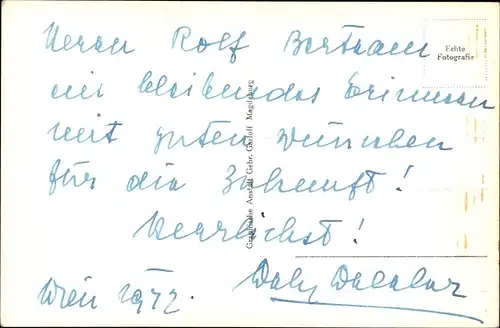 Herrn Rolf Bertram
ein bleibendes Erinnern
mit guten Wünschen
für die Zukunft!
Herzlichst!
Wien 1942.
Echte
Fotografie
Graphische Anstalt Gebr. Garloff Magdeburg